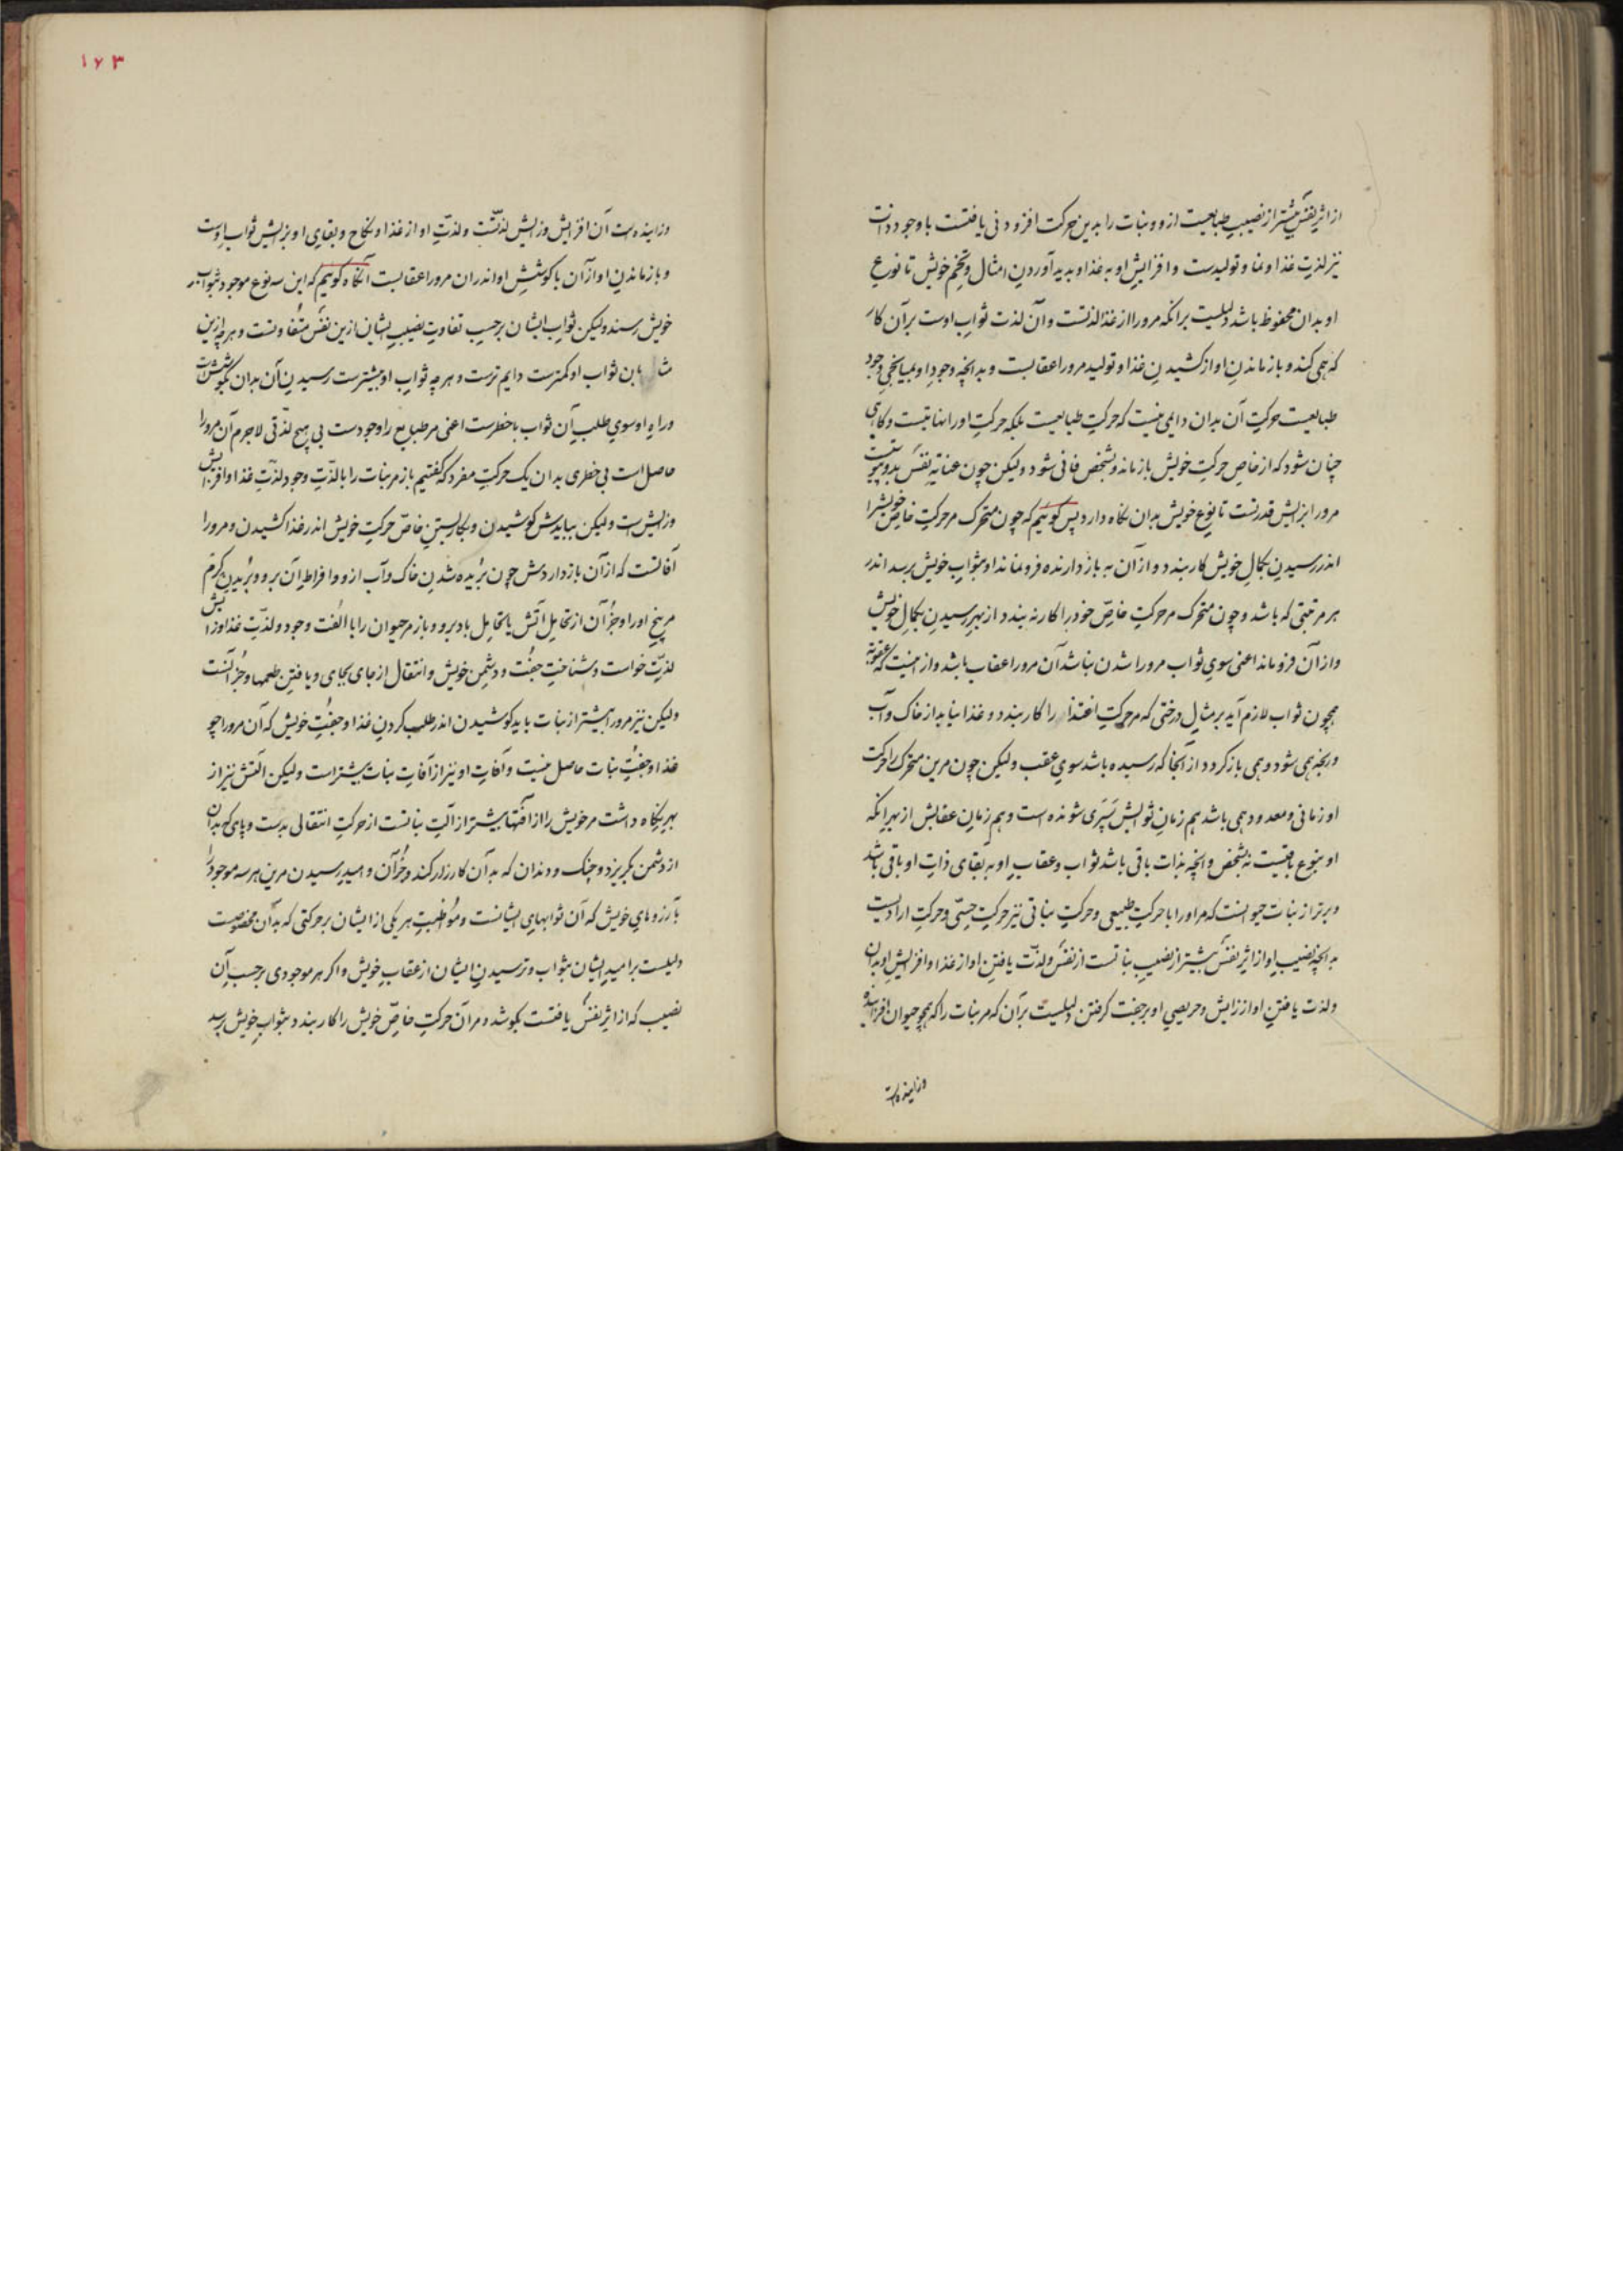 از اثر نفس بیشتر از نصیب طبایعست ازو و نبات را بدین حرکت افزودنی یافتست با وجود ذات
نیز لذت غذا و نما و تولیدست و افزایش او به غذا و بدید آوردن امثال و تخم خویش تا نوع
او بدان محفوظ باشد دلیلست برانکه مرورا از غذا لذتست و آن لذت ثواب اوست بر آن کار
که همی کند و باز ماندن او از کشیدن غذا و تولید مرورا عقابست و بدانچه وجود او بمیانجی وجود
طبایعست حرکت آن بدان دایمی نیست که حرکت طبایعست بلکه حرکت او را نهایتست و کاهی
چنان شود که از خاص حرکت خویش باز ماند و شخص فانی شود ولیکن چون عنایة نفس بدو پیوستست
مرورا بزایش قدرتست تا نوع خویش بدان نکاه دارد پس کوئیم که چون متحرک مر حرکت خاص خویش را
اندر رسیدن بکمال خویش کار بندد و از آن به باز دارنده فرو نماند او بثواب خویش برسد اندر
هر مرتبتی که باشد و چون متحرک مر حرکت خاص خود را کار نه بندد از بهر رسیدن بکمال خویش
و از آن فرو ماند اعنی سوی ثواب مرورا شدن نباشد آن مرورا عقاب باشد و از اینست که عقوبة
همچون ثواب لازم آید بر مثال درختی که مر حرکت اغتذا را کار بندد و غذا نیابد از خاک و آب
و رنجه همی شود و همی باز کردد از آنجا که رسیده باشد سوی عقب ولیکن چون مرین متحرک را حرکت
او زمانی و معدود همی باشد هم زمان ثوابش سپری شونده است و هم زمان عقابش از بهر انکه
او بنوع باقیست نه بشخص و انچه بذات باقی باشد ثواب و عقاب او به بقای ذات او باقی باشد
و برتر از نبات حیوانست که مر او را با حرکت طبیعی و حرکت نباتی نیز حرکت حسّی و حرکت ارادیست
بدانچه نصیب او از اثر نفس بیشتر از نصیب نباتست از نفس و لذّت یافتن او از غذا و افزایش او بدان
و لذت یافتن او از زایش و حریصی او بر جفت کرفتن دلیلست بر آن که مر نبات را که همچو حیوان افزاینده
و زاینده است
۱۶۳
و زاینده است آن افزایش و زایش لذتست و لذّت او از غذا و نکاح و بقای او بزایش ثواب اوست
و باز ماندن او از آن با کوشش او اندران مرورا عقابست آنکاه کوئیم که این سه نوع موجود بثواب
خویش رسند ولیکن ثواب ایشان برحسب تفاوت نصیب ایشان ازین نفس متفاوتست و هر چه ازین
ثواب او کمترست دایم ترست و هر چه ثواب او بیشترست رسیدن آن بدان بکوشش است
و راه او سوی طلب آن ثواب با خطرست اعنی مر طبایع را وجودست بی هیچ لذّتی لاجرم آن مرورا
حاصل است بی خطری بدان یک حرکت مفرد که کفتیم باز مر نبات را با لذّت وجود لذّت غذا و افزایش
و زایش است ولیکن ببایدش کوشیدن و بکار بستن خاصّ حرکت خویش اندر غذا کشیدن و مرورا
آفاتست که از آن باز داردش چون بریده شدن خاک و آب ازو و افراط آن برو و بریدن کرم
مر بیخ او را و جز آن از تحایل آتش یا تحایل باد برو و باز مر حیوان را با الفت وجود و لذّت غذا و زایش
لذّت خواست و شناخت جفت و دشمن خویش و انتقال از جای بجای و یافتن طعمها و جز آنست
ولیکن نیز مرورا بیشتر از نبات باید کوشیدن اندر طلب کردن غذا و جفت خویش که آن مرورا چو
غذا و جفت نبات حاصل نیست و آفات او نیز از آفات نبات بیشتر است ولیکن آلتش نیز از
بهر نکاه داشت مر خویش را از آفتها بیشتر از آلت نباتست از حرکت انتقالی بدست و پای که بدان
از دشمن بکریزد و چنک و دندان که بدان کارزار کند و جز آن و امید رسیدن مرین هر سه موجود را
بآرزوهای خویش که آن ثوابهای ایشانست و مواظبت هر یکی از ایشان بر حرکتی که بدان مخصوصست
دلیلست بر امید ایشان بثواب و ترسیدن ایشان از عقاب خویش و اکر هر موجودی برحسب آن
نصیب که از اثر نفس یافتست بکوشد و مر آن حرکت خاصّ خویش را کار بندد بثواب خویش برسد